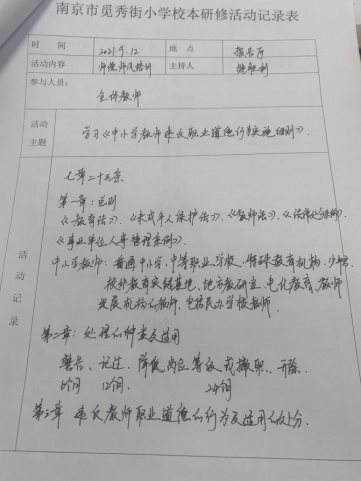 南京市觅秀街小学校本研修活动记录表
时 间 2021.9.12 地 点 报告厅
活动内容 师德师风培训 主持人
参与人员:
全体教师
活动主题 学习《中小学教师违反职业道德行为实施细则》.
活动记录
七章二十三条
第一章:总则
《教育法》、《未成年人保护法》、《教师法》、
《事业单位人事管理条例》.
中小学教师:普通中小学、中等职业学校、特殊教育机构、少年宫、
校外教育实践基地、地方教研室、电化教育、教师
发展机构的教师,包括民办学校教师.
第二章:处理的种类及适用
警告、记过、降低岗位等级或撤职、开除.
6个月 12个月 24个月
第三章 违反教师职业道德的行为及适用的处分.